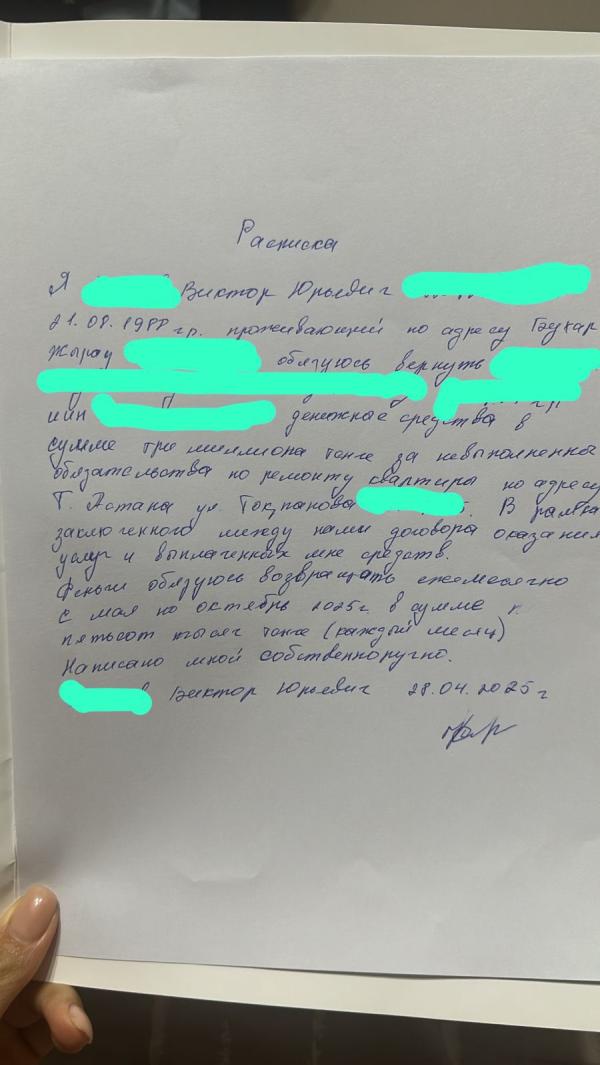 Расписка
Я Виктор Юрьевич
21.08.1988 гр. проживающий по адресу Бухар
Жырау обязуюсь вернуть
иин денежные средства в
сумме три миллиона тенге за невыполненные
обязательства по ремонту квартиры по адресу
Г. Астана ул. Токпанова В рамках
заключенного между нами договора оказания
услуг и выплаченных мне средств.
Деньги обязуюсь возвращать ежемесячно
с мая по октябрь 2025г в сумме
пятьсот тысяч тенге (каждый месяц)
Написано мной собственноручно.
Виктор Юрьевич 28.04.2025г